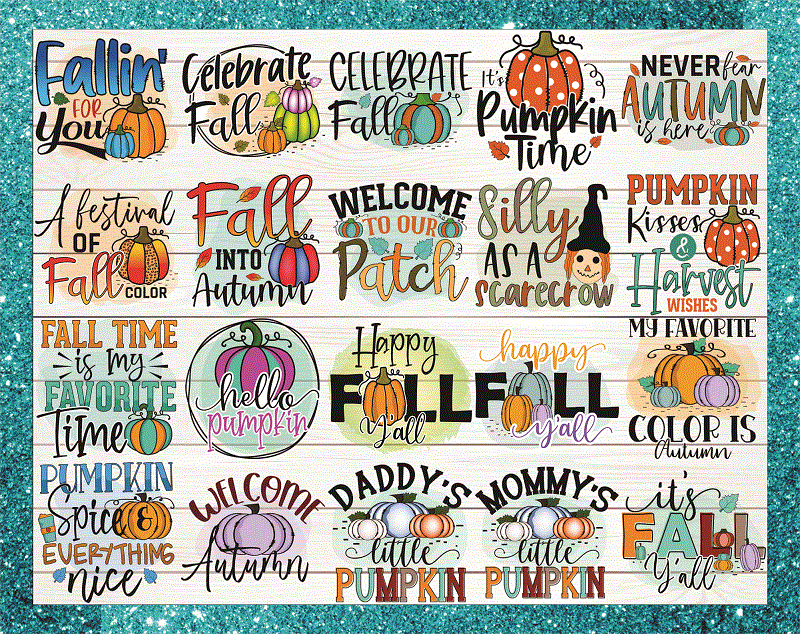 Fallin'
FOR
You
Celebrate
Fall
CELEBRATE
Fall
It's
Pumpkin
Time
NEVER fear
AUTUMN
is here
A festival
OF
Fall
COLOR
Fall
INTO
Autumn
WELCOME
TO OUR
Patch
Silly
AS A
scarecrow
PUMPKIN
Kisses
&
Harvest
WISHES
FALL TIME
is my
FAVORITE
Time
hello
pumpkin
Happy
FALL
Y'all
happy
FALL
y'all
MY FAVORITE
COLOR IS
Autumn
PUMPKIN
Spice &
EVERYTHING
nice
WELCOME
Autumn
DADDY'S
little
PUMPKIN
MOMMY'S
little
PUMPKIN
it's
FALL
Y'all